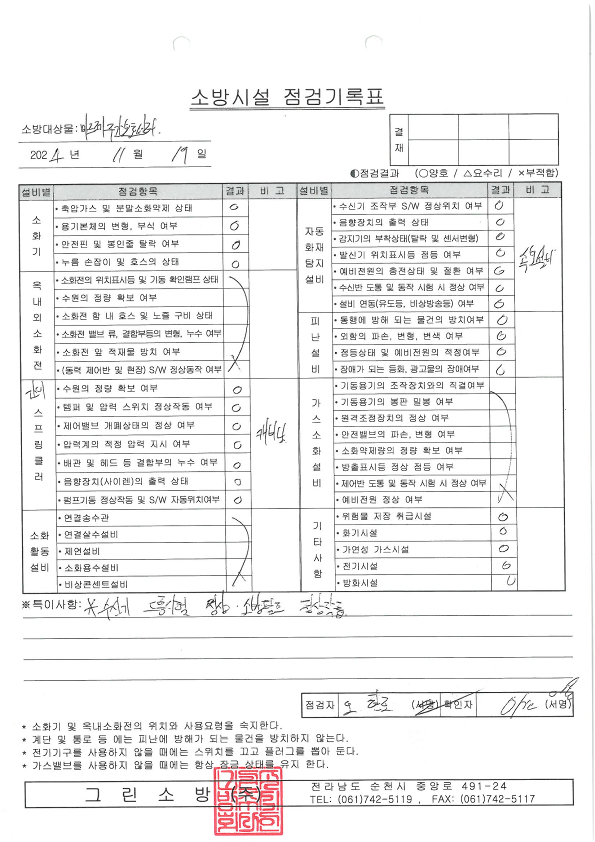 소방시설 점검기록표
소방대상물:
결재
2024 년 11 월 19 일
◐점검결과 (○양호 / △요수리 / ×부적합)
설비별 점검항목 결과 비 고 설비별 점검항목 결과 비 고
소화기
• 축압가스 및 분말소화약제 상태 ○
• 용기본체의 변형, 부식 여부 ○
• 안전핀 및 봉인줄 탈락 여부 ○
• 누름 손잡이 및 호스의 상태 ○
옥내외소화전
• 소화전의 위치표시등 및 기동 확인램프 상태
• 수원의 정량 확보 여부
• 소화전 함 내 호스 및 노즐 구비 상태
• 소화전 밸브 류, 결합부등의 변형, 누수 여부
• 소화전 앞 적재물 방치 여부
• (동력 제어반 및 현장) S/W 정상동작 여부 ×
간이 스프링클러
• 수원의 정량 확보 여부 ○
• 템퍼 및 압력 스위치 정상작동 여부 ○
• 제어밸브 개폐상태의 정상 여부 ○
• 압력계의 적정 압력 지시 여부 ○
• 배관 및 헤드 등 결합부의 누수 여부 ○
• 음향장치(사이렌)의 출력 상태 ○
• 펌프기동 정상작동 및 S/W 자동위치여부 ○
캐비닛
소화활동설비
• 연결송수관
• 연결살수설비
• 제연설비
• 소화용수설비
• 비상콘센트설비 ×
자동화재탐지설비
• 수신기 조작부 S/W 정상위치 여부 ○
• 음향장치의 출력 상태 ○
• 감지기의 부착상태(탈락 및 센서변형) ○
• 발신기 위치표시등 점등 여부 ○
• 예비전원의 충전상태 및 절환 여부 ○
• 수신반 도통 및 동작 시험 시 정상 여부 ○
• 설비 연동(유도등, 비상방송등) 여부 ○
피난설비
• 통행에 방해 되는 물건의 방치여부 ○
• 외함의 파손, 변형, 변색 여부 ○
• 점등상태 및 예비전원의 적정여부 ○
• 장애가 되는 등화, 광고물의 장애여부 ○
가스소화설비
• 기동용기의 조작장치와의 직결여부
• 기동용기의 봉판 밀봉 여부
• 원격조정장치의 정상 여부
• 안전밸브의 파손, 변형 여부
• 소화약제량의 정량 확보 여부
• 방출표시등 정상 점등 여부
• 제어반 도통 및 동작 시험 시 정상 여부
• 예비전원 정상 여부 ×
기타사항
• 위험물 저장 취급시설 ○
• 화기시설 ○
• 가연성 가스시설 ○
• 전기시설 ○
• 방화시설 ○
※특이사항: 수신기 도통시험 정상. 소방펌프 정상작동
점검자 오 (서명) 확인자 (서명)
* 소화기 및 옥내소화전의 위치와 사용요령을 숙지한다.
* 계단 및 통로 등 에는 피난에 방해가 되는 물건을 방치하지 않는다.
* 전기기구를 사용하지 않을 때에는 스위치를 끄고 플러그를 뽑아 둔다.
* 가스밸브를 사용하지 않을 때에는 항상 잠금 상태를 유지 한다.
그 린 소 방 (주)
전라남도 순천시 중앙로 491-24
TEL: (061)742-5119 , FAX: (061)742-5117